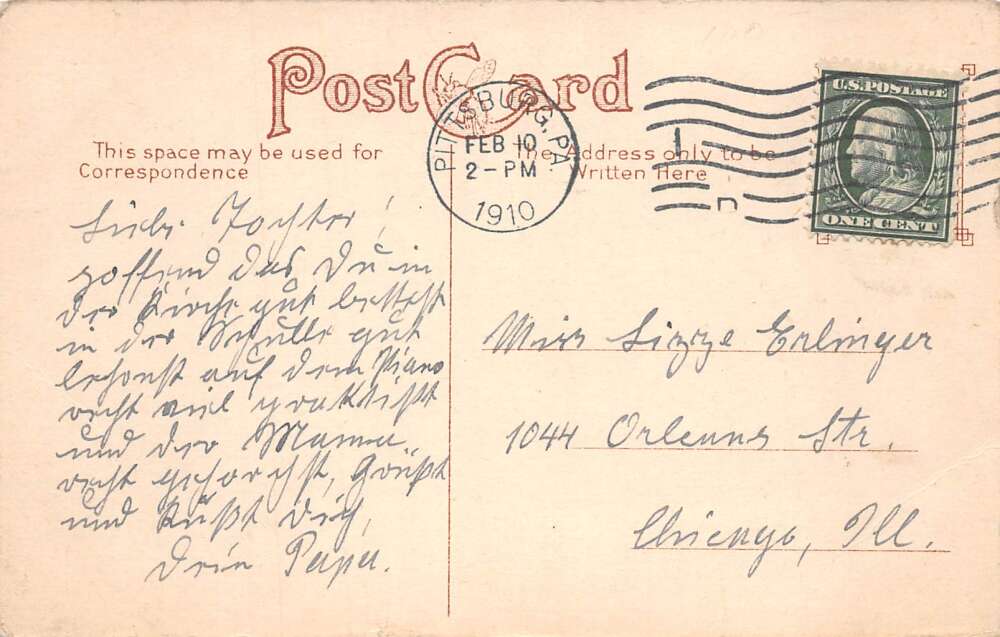 Post Card
This space may be used for
Correspondence
The Address only to be
Written Here
PITTSBURG, PA.
FEB 10
2-PM
1910
U.S. POSTAGE
ONE CENT
Liebe Tochter!
hoffend das Du in
der Kirche gut bettest
in der Schulle gut
lehrnst auf dem Piano
recht viel praktist
und der Mamma
recht gehorchst, Grüßt
und Küßt Dich,
Dein Papa.
Miss Lizzye Erlinger
1044 Orleans Str.
Chicago, Ill.